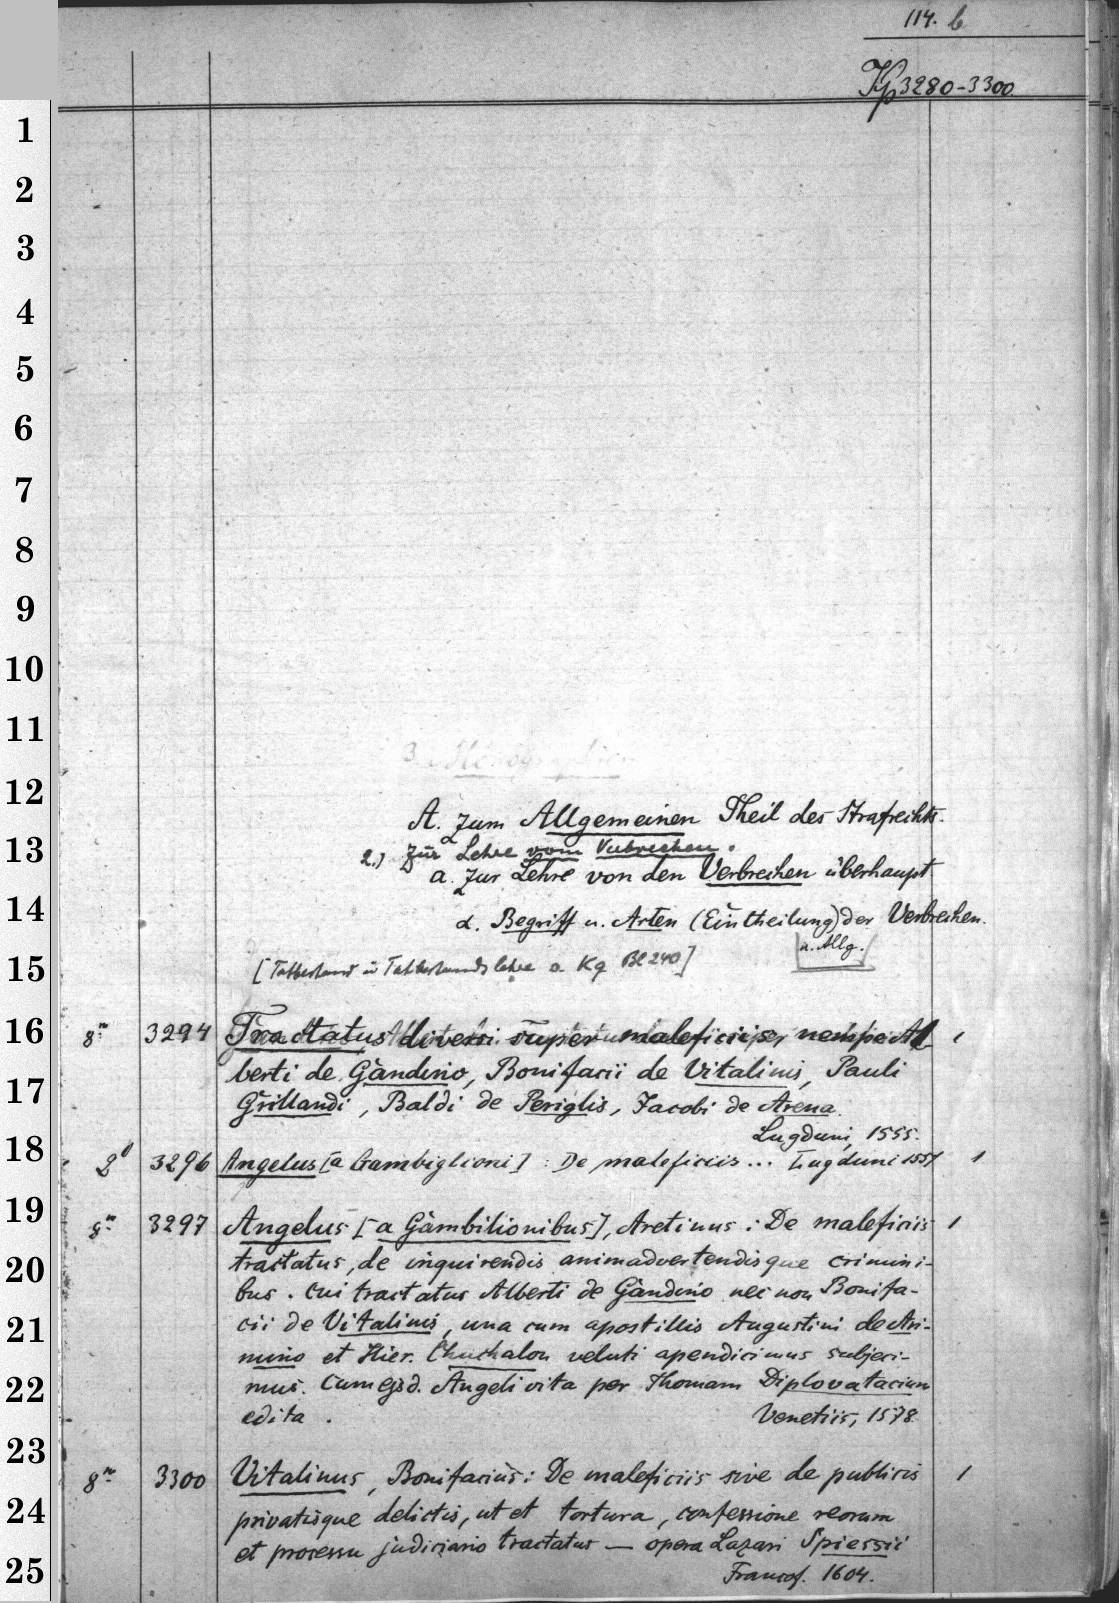 114. b
Kp 3280-3300.
1
2
3
4
5
6
7
8
9
10
11
12
13
14
15
16
17
18
19
20
21
22
23
24
25
3.
A. Zum Allgemeinen Theil des Strafrechts.
2.) Zur Lehre vom Verbrechen.
a. Zur Lehre von den Verbrechen überhaupt
α. Begriff u. Arten (Eintheilung) der Verbrechen.
u. Allg.
[Tatbestand u Tatbestandslehre s. Kq Bl 240]
8° 3294 Tractatus diversi super maleficiis, nempe Al 1
berti de Gandino, Bonifacii de Vitalinis, Pauli
Grillandi, Baldi de Periglis, Jacobi de Arena.
Lugduni, 1555.
2° 3296 Angelus [a Gambiglioni] : De maleficiis ... Lugduni 1551 1
8° 3297 Angelus [a Gambilionibus], Aretinus : De maleficiis 1
tractatus, de inquirendis animadvertendisque crimini-
bus. cui tractatus Alberti de Gandino nec non Bonifa-
cii de Vitalinis, una cum apostillis Augustini de Ari-
mino et Hier. Chuchalon veluti apendicimus subjeci-
mus. Cum ejsd. Angeli vita per Thomam Diplovatacium
edita. Venetiis, 1578.
8° 3300 Vitalinus, Bonifacius: De maleficiis sive de publicis 1
privatisque delictis, ut et tortura, confessione reorum
et processu judiciario tractatus — opera Lazari Spiessii
Francof. 1604.